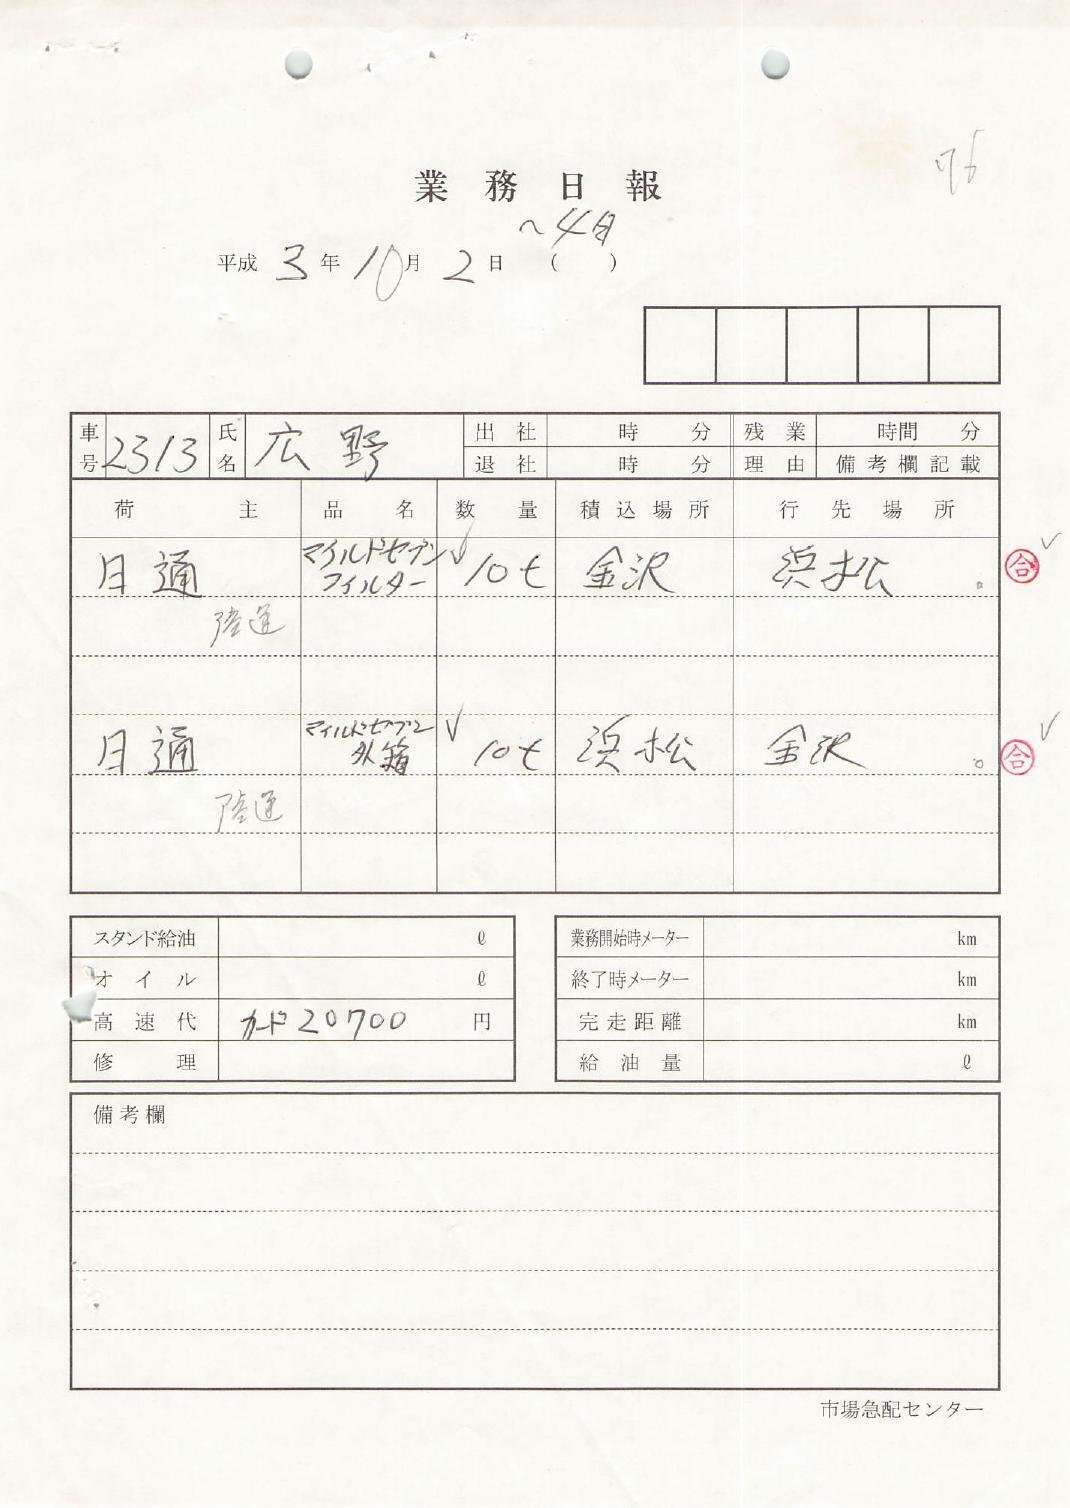 96
業務日報
～4日
平成 3 年 10 月 2 日 ( )
車号 2313 氏名 広野 出社 時 分 残業 時間 分
退社 時 分 理由 備考欄記載
荷主 品名 数量 積込場所 行先場所
日通 マイルドセブンフィルター 10t 金沢 浜松 合
陸運
日通 マイルドセブン外箱 10t 浜松 金沢 合
陸運
スタンド給油 ℓ 業務開始時メーター km
オイル ℓ 終了時メーター km
高速代 カード20700 円 完走距離 km
修理 給油量 ℓ
備考欄
市場急配センター